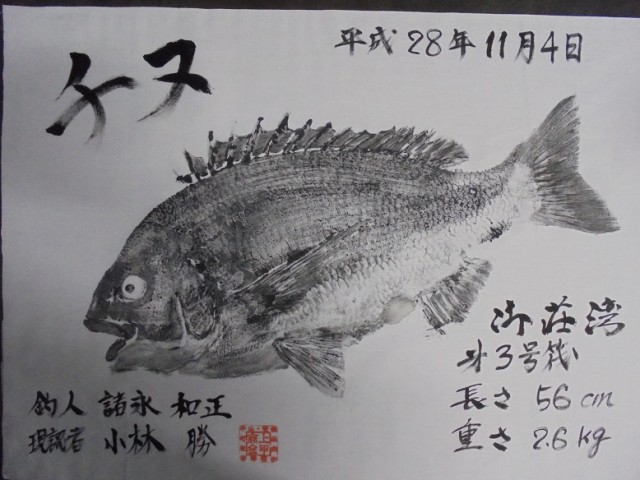 平成28年11月4日
チヌ
御荘湾
才3号筏
長さ 56cm
重さ 2.6kg
釣人 諸永 和正
現認者 小林 勝